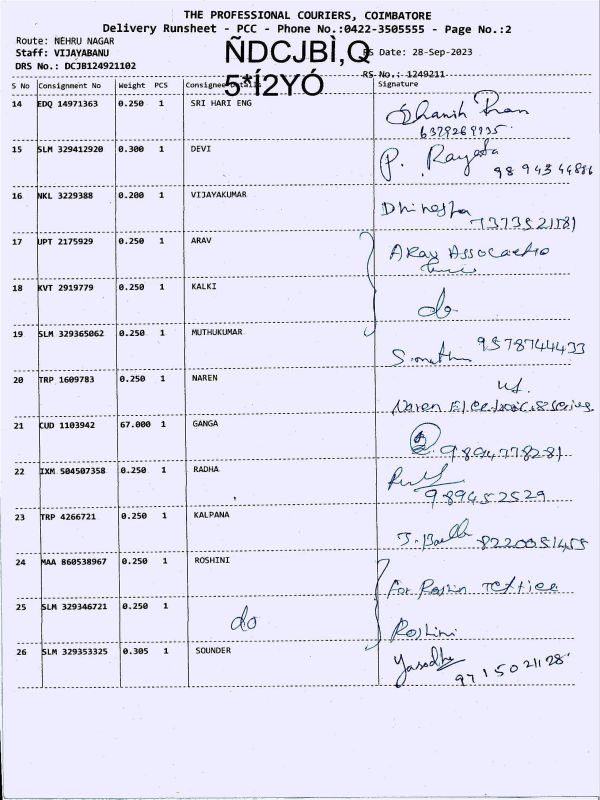 THE PROFESSIONAL COURIERS, COIMBATORE
Delivery Runsheet - PCC - Phone No.:0422-3505555 - Page No.:2
Route: NEHRU NAGAR
Staff: VIJAYABANU
Date: 28-Sep-2023
DRS No.: DCJB124921102
ÑDCJBÌ,Q
5*Í2YÓ
RS No.: 1249211
S No Consignment No Weight PCS Consignee Details Signature
14 EDQ 14971363 0.250 1 SRI HARI ENG
6379269935
15 SLM 329412920 0.300 1 DEVI P.
9894344886
16 NKL 3229388 0.200 1 VIJAYAKUMAR
7373521181
17 UPT 2175929 0.250 1 ARAV
18 KVT 2919779 0.250 1 KALKI do
19 SLM 329365062 0.250 1 MUTHUKUMAR
9578744433
20 TRP 1609783 0.250 1 NAREN
21 CUD 1103942 67.000 1 GANGA
22 IXM 504507358 0.250 1 RADHA
989452529
23 TRP 4266721 0.250 1 KALPANA
8220051455
24 MAA 860538967 0.250 1 ROSHINI
25 SLM 329346721 0.250 1 do Roshini
26 SLM 329353325 0.305 1 SOUNDER Yasodha
9715021128